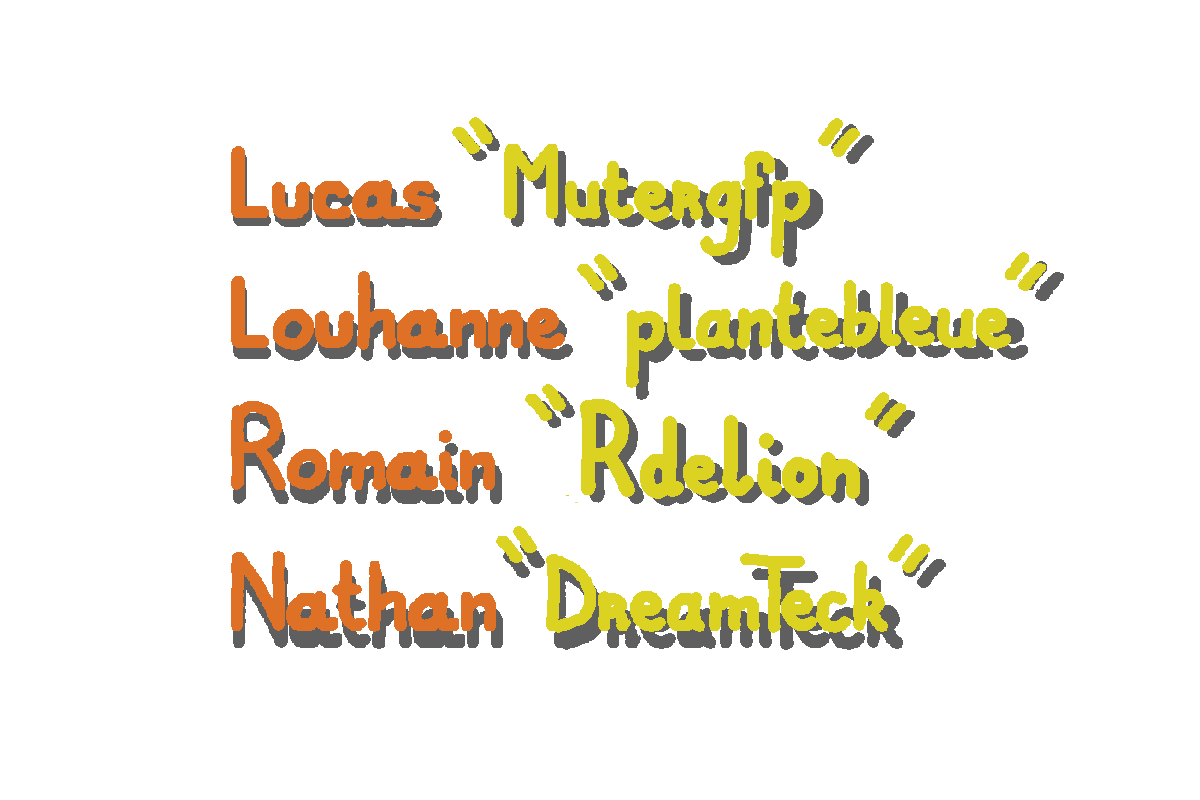 Lucas "Mutergfp"
Louhanne "plantebleue"
Romain "Rdelion"
Nathan "DreamTeck"